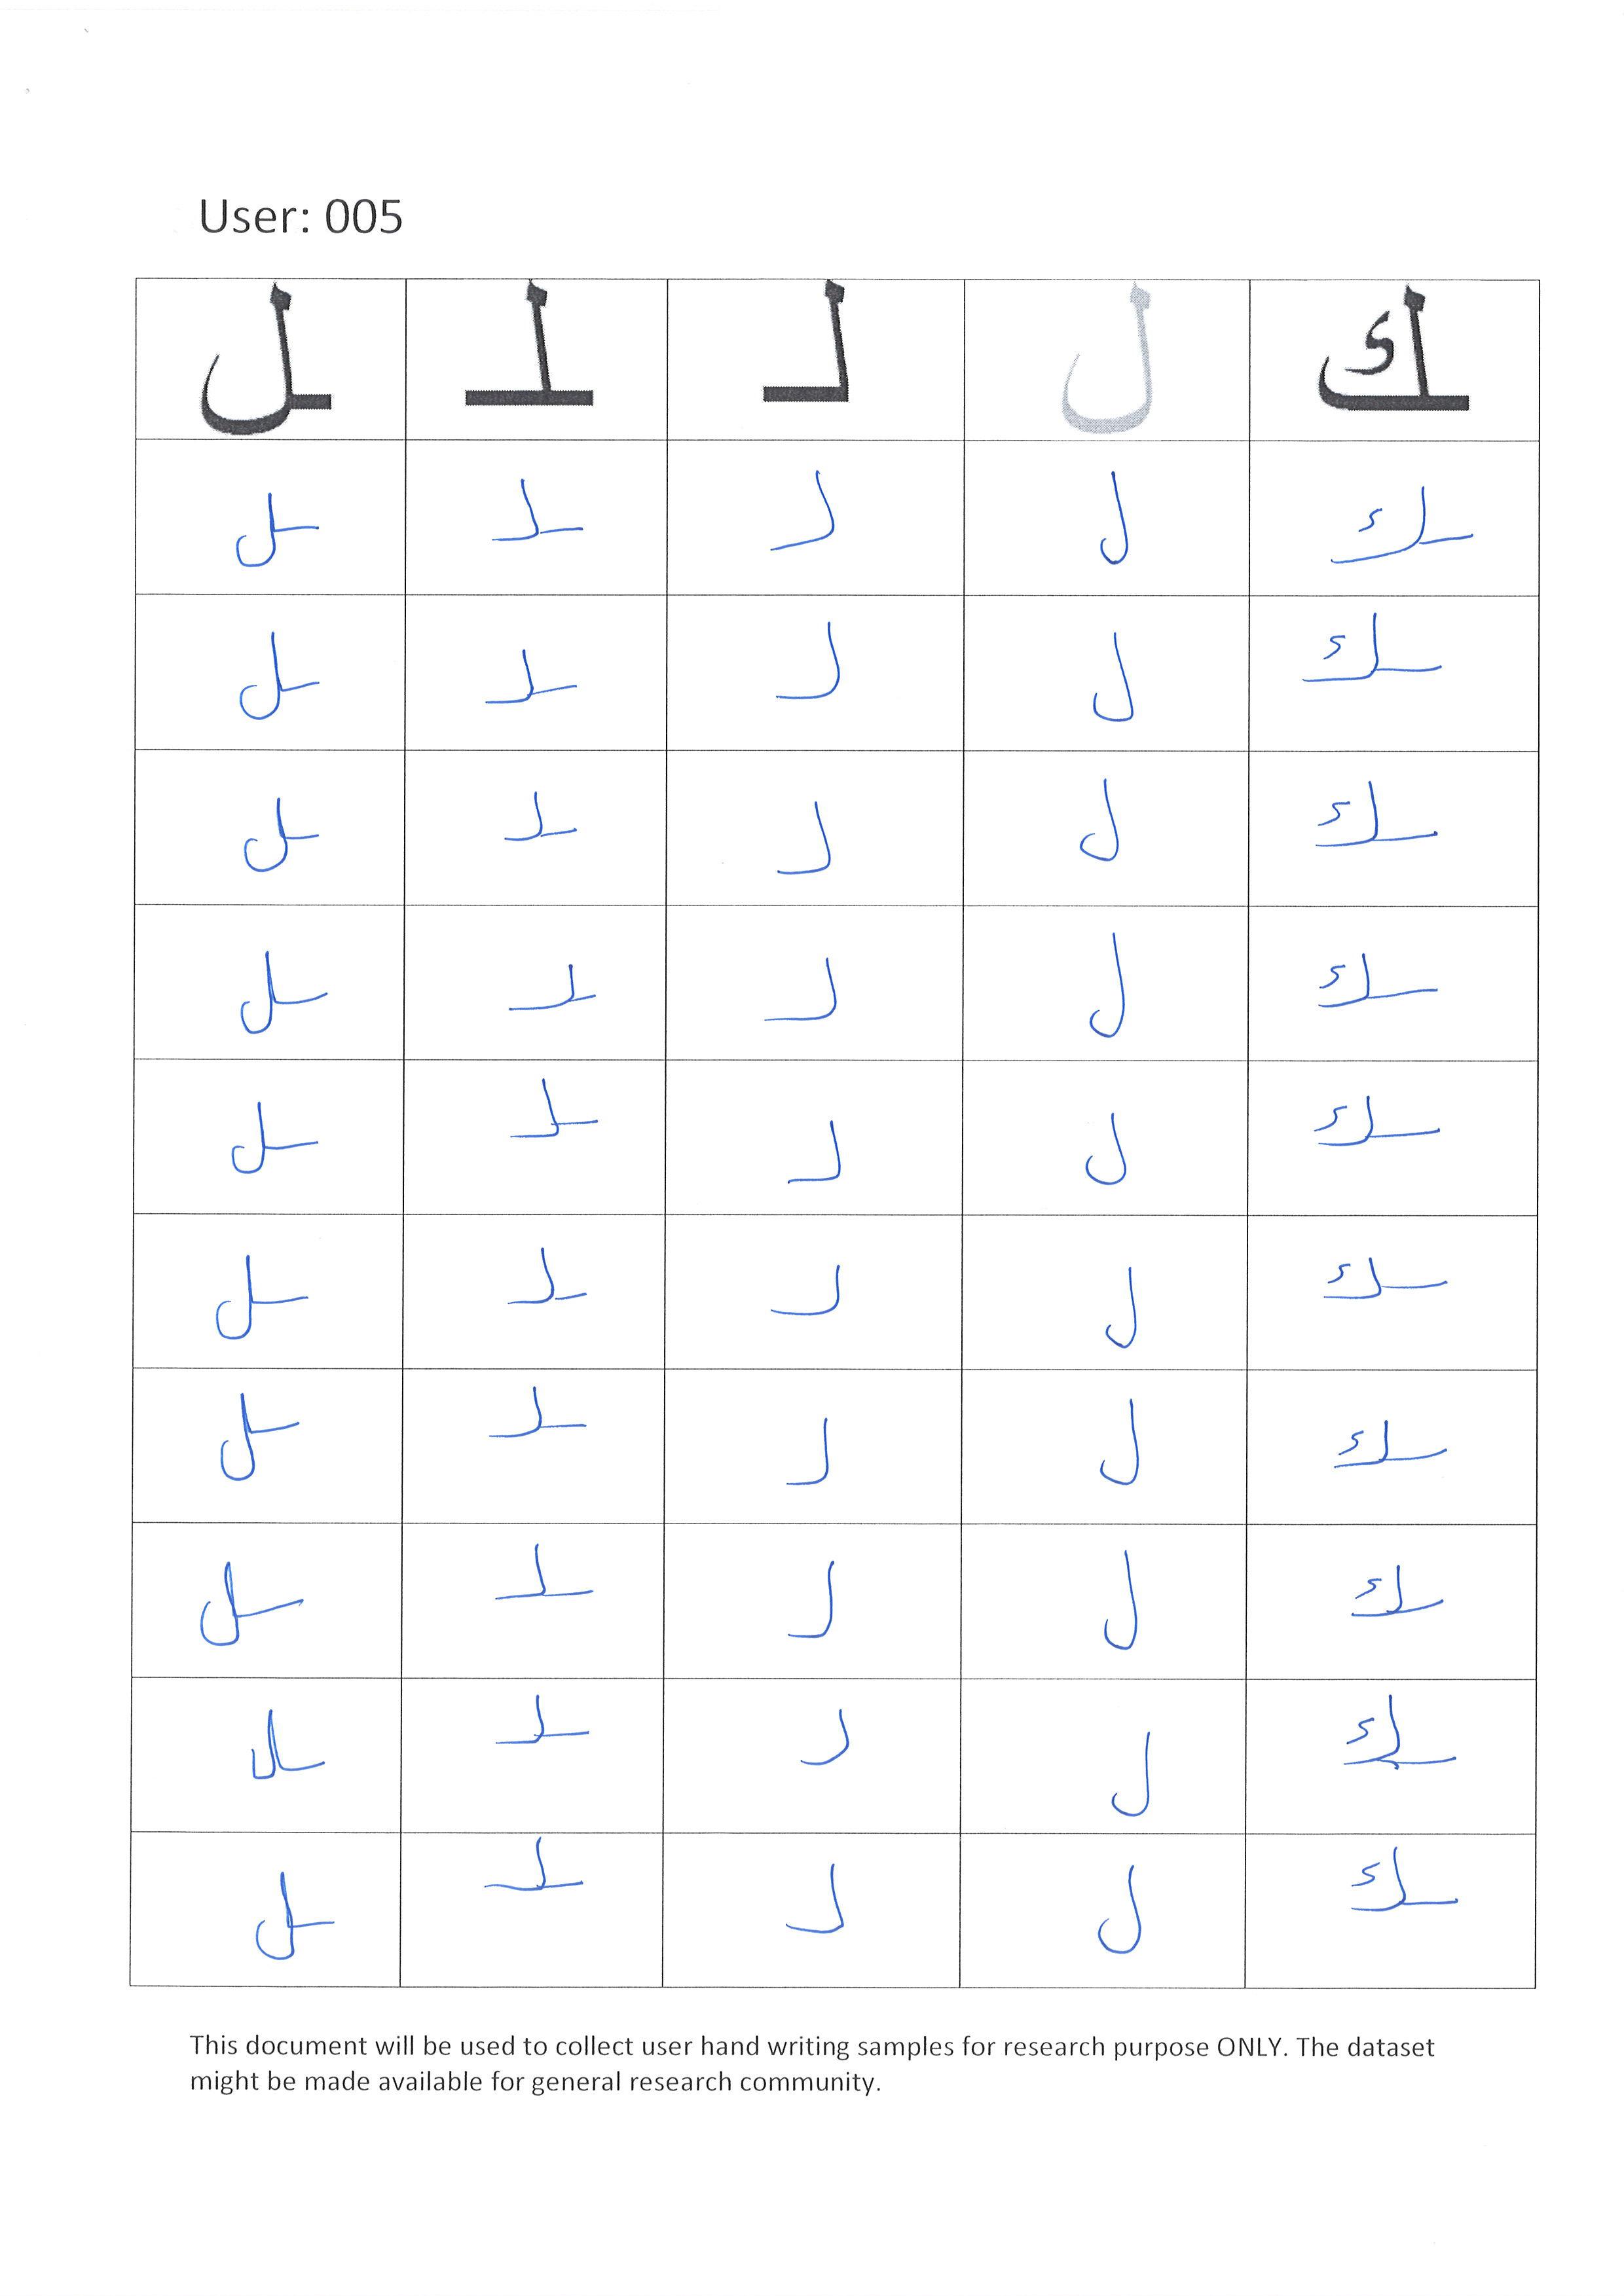 User: 005
ك ل لـ ـلـ ـل
ـك ل لـ ـلـ ـل
ـك ل لـ ـلـ ـل
ـك ل لـ ـلـ ـل
ـك ل لـ ـلـ ـل
ـك ل لـ ـلـ ـل
ـك ل لـ ـلـ ـل
ـك ل لـ ـلـ ـل
ـك ل لـ ـلـ ـل
ـك ل لـ ـلـ ـل
ـك ل لـ ـلـ ـل
This document will be used to collect user hand writing samples for research purpose ONLY. The dataset
might be made available for general research community.